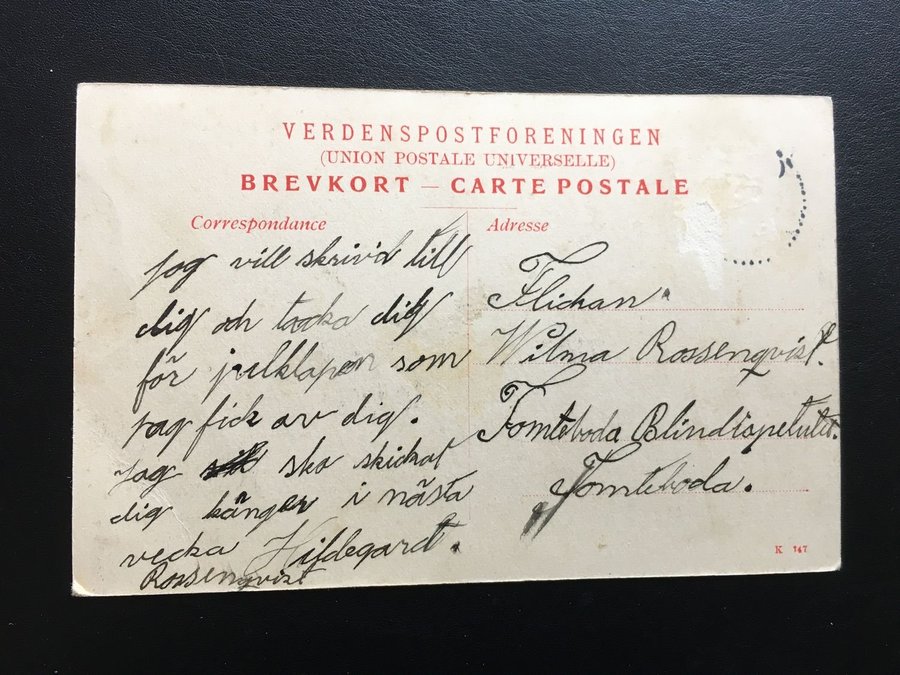 VERDENSPOSTFORENINGEN
(UNION POSTALE UNIVERSELLE)
BREVKORT — CARTE POSTALE
Correspondance
Jag vill skriva till
dig och tacka dig
för julklapen som
jag fick av dig.
Jag ska skickat
dig känger i nästa
vecka Hildegard.
Rossenqvist
Adresse
Flickan.
Wilma Rossenqvist.
Tomteboda
Tomteboda.
K 147